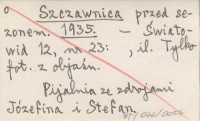 o Szczawnica przed se-
zonem. 1935. - Świato-
wid 12, nr. 23: , il. Tylko
fot. z objaśn.
Pijalnia ze zdrojami
Józefina i Stefan.